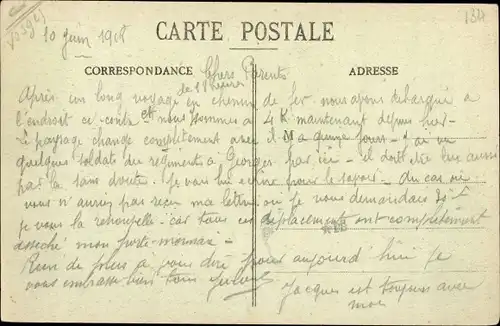 10 Juin 1918
134
CARTE POSTALE
CORRESPONDANCE
ADRESSE
Chers Parents
Après un long voyage en chemin de fer nous avons débarqué à
de 18 heures
l'endroit ci-contre et nous sommes à 4K maintenant depuis hier -
Le paysage change complètement avec il y a quinze jours - J'ai vu
quelques soldat du regiment a Georges par ici - il doit être lui aussi
par là sans doute. Je vais lui ecrire pour le savoir. Au cas où
vous n'auriez pas reçu ma lettre où je vous demandais
je vous la renouvelle - car tous ces déplacements ont complètement
asseché mon porte-monnaie -
Rien de plus à vous dire pour aujourd'hui je
vous embrasse bien tous
Jacques est toujours avec
moi